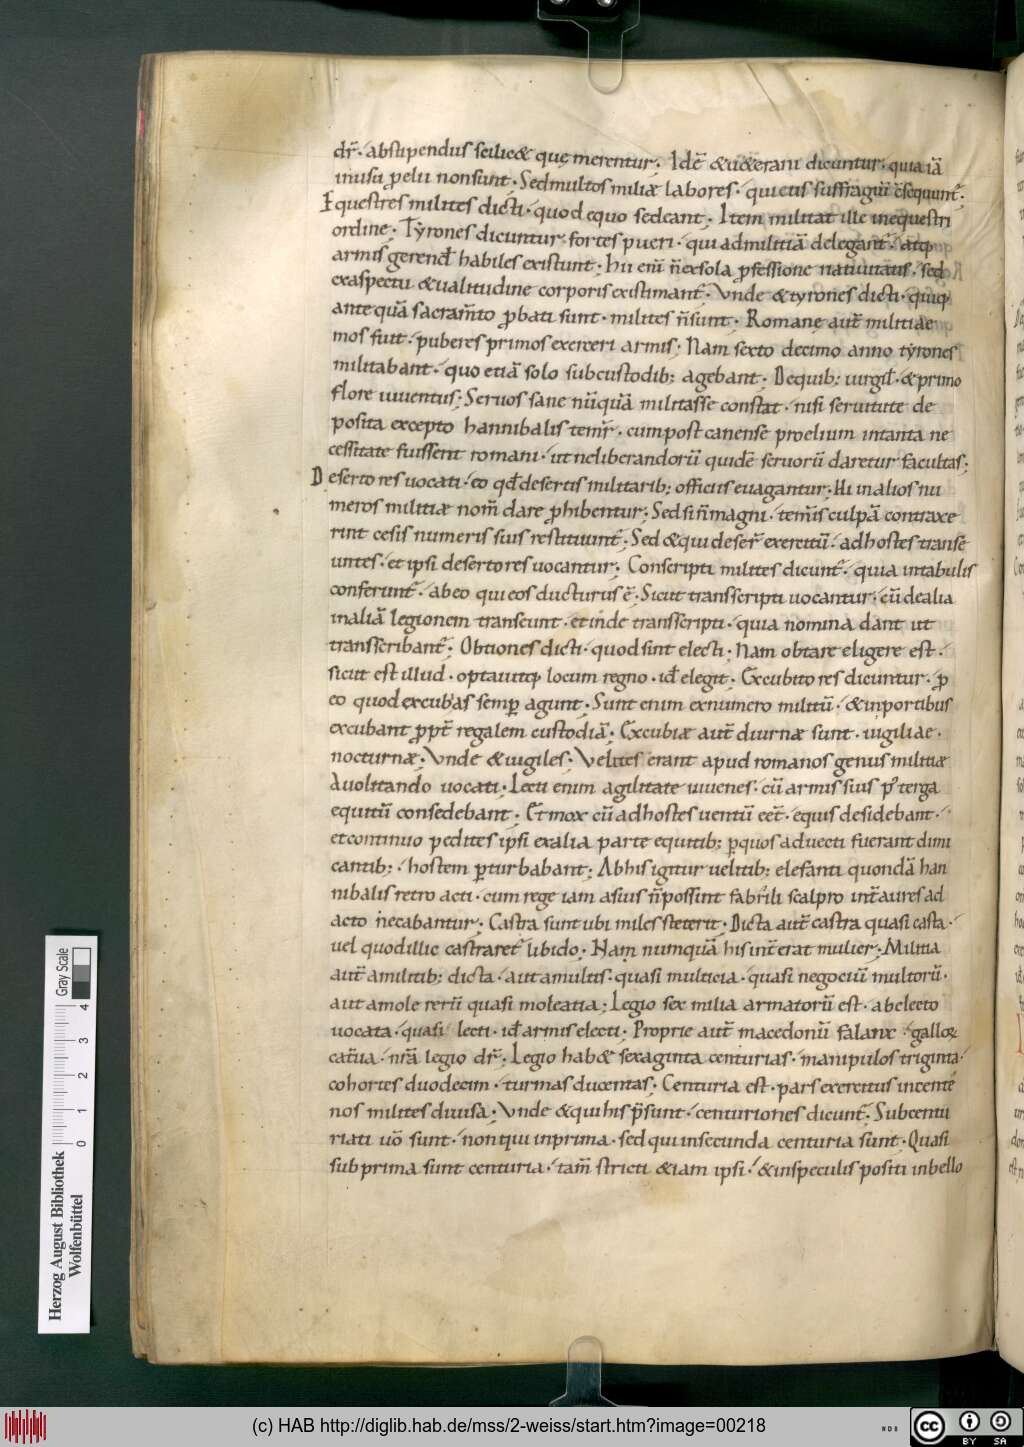 dr̄· abstipendus scilic& quę merentur· Idē &u&erani dicuntur· quia iā
inusu p̄elii nonsunt· Sedmultos militiæ labores· qui eius suffragiū c̄sequunt̄·
Equestres milites dicti· quod equo sedeant· Item militat ille inequestri
ordine· Tyrones dicuntur fortes pueri· qui admilitiā delegant̄· atq
armis gerend̄ habiles existunt· Hii eni n̄ exsola p̄fessione natiuitatis· sed
exaspectu &ualitudine corporis existimant̄· Vnde &tyrones dicti· quiq
ante quā sacram̄to p̄bati sunt· milites n̄sunt· Romane aut̄ militiae
mos fuit· puberes primos exerceri armis· Nam sexto decimo anno tyrones
militabant· quo etiā solo subcustodib; agebant· Dequib; uirgil̄· &primo
flore iuuentus; Seruos sane nūquā militasse constat· nisi seruitute de
posita excepto hannibalis temꝑ̄· cumpost canense proelium intanta ne
cessitate fuissent romani· ut neliberandorū quidē seruorū daretur facultas;
Desertores uocati· eo qd̄ desertis militarib; officiis euagantur· Hi inalios nu
meros militiæ nom̄ dare p̄hibentur; Sed si n̄ magni· tem̄is culpā contraxe
rint cesis numeris suis restituunt̄· Sed &qui deser̄ exercitū· adhostes transe
untes· et ipsi desertores uocantur; Conscripti milites dicunt̄· quia intabulis
conferunt̄· abeo qui eos ducturus ē· Sicut transscripti uocantur· cū dealia
inaliā legionem transeunt· et inde transscripti· quia nomina dant ut
transscribant̄· Obtiones dicti· quod sint electi; Nam obtare eligere est·
sicut est illud· optauitq locum regno· id̄ elegit; Excubitores dicuntur· p̄
eo quod excubias semp̄ agunt; Sunt enim exnumero militū· &inportibus
excubant p̄pt̄ regalem custodiā; Excubiæ aut̄ diurnæ sunt· uigiliae·
nocturnæ; Vnde &uigiles; Velites erant apud romanos genus militiæ
Auolitando uocati; Lecti enim agilitate iuuenes· cū armis suis p̄ terga
equitū consedebant· Et mox cū adhostes uentū eēt· equis desidebant·
et continuo pedites ipsi exalia parte equitib; p̄quos aduecti fuerant dimi
cantib;· hostem p̄turbabant; Abhis igitur uelitib; elefanti quondā han
nibalis retro acti· cum rege iam asius n̄possint fabrili scalpro int̄aures ad
acto necabantur; Castra sunt ubi miles steterit· Dicta aut̄ castra quasi casta·
uel quodillic castraret̄ libido; Nam numquā his int̄erat mulier; Militia
aut̄ amilitib; dicta· aut amultis· quasi multicia· quasi negociū multorū·
aut amole rerū quasi moleatia; Legio sex milia armatorū est· abelecto
uocata· quasi lecti· id̄ armis electi· Proprie aut̄ macedonū falanx· galloꝝ
cat̄ua· nr̄a legio dr̄· Legio hab& sexaginta centurias· manipulos triginta·
cohortes duodecim· turmas ducentas; Centuria est· pars exercitus incente
nos milites diuisa· Vnde &qui his p̄sunt· centuriones dicunt̄· Subcentu
riati uō sunt· non qui inprima· sed qui insecunda centuria sunt· Quasi
sub prima sunt centuria· tam̄ stricti &iam ipsi· &inspeculis positi inbello
Gray Scale
0 1 2 3 4
Herzog August Bibliothek
Wolfenbüttel
(c) HAB http://diglib.hab.de/mss/2-weiss/start.htm?image=00218
cc BY SA